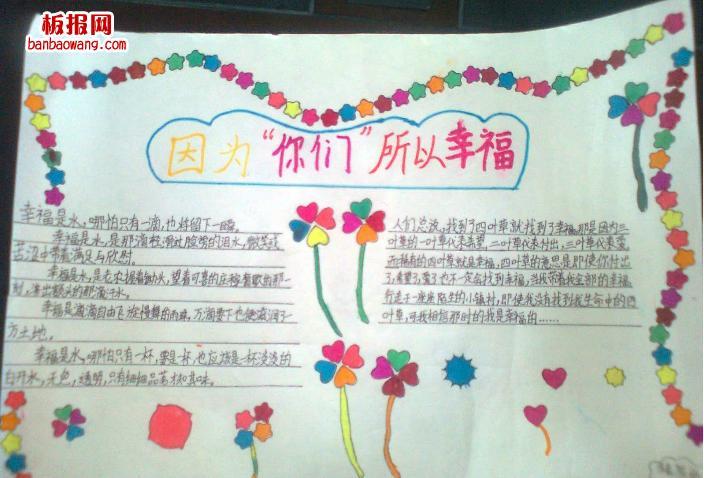 板报网
banbaowang.com
因为“你们”所以幸福
幸福是水，哪怕只有一滴，也将留下一瞬。
幸福是水，是那滴轻滑过脸旁的泪水，微笑或
苦涩中带着满足与欣慰。
幸福是水，是老农握着锄头，望着可喜的庄稼
刻，渗出额头的那滴汗水。
幸福是滴滴自由飞旋慢舞的雨珠，万滴落下也便滋润了一
方土地。
幸福是水，哪怕只有一杯，也应该是一杯淡淡的
白开水，无色，透明，只有细细品茗才知其味。
人们总说，找到了四叶草就找到了幸福，那是因为三
叶草的一叶草代表希望，二叶草代表付出，三叶草代表爱，
而稀有的四叶草就是幸福，四叶草的意思是即使你付出
了，希望了，爱了也不一定会找到幸福，当我带着我全部的幸福，
行走于一座座陌生的小镇村，即使我没有找到我生命中的四
叶草，可我相信那时的我是幸福的……